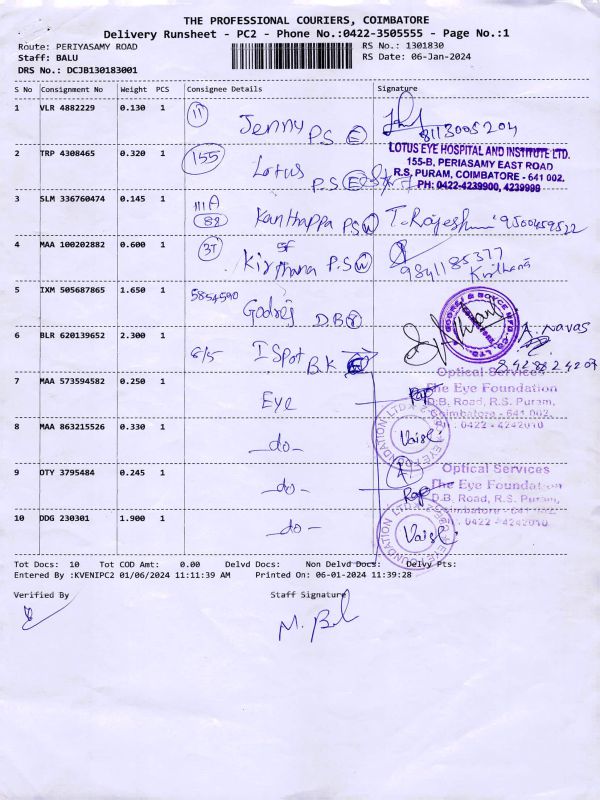 THE PROFESSIONAL COURIERS, COIMBATORE
Delivery Runsheet - PC2 - Phone No.:0422-3505555 - Page No.:1
Route: PERIYASAMY ROAD
RS No.: 1301830
Staff: BALU
RS Date: 06-Jan-2024
DRS No.: DCJB130183001
S No Consignment No Weight PCS Consignee Details Signature
1 VLR 4882229 0.130 1 11 Jenny P.S E 8113005204
2 TRP 4308465 0.320 1 155 Lotus P.S
LOTUS EYE HOSPITAL AND INSTITUTE LTD.
155-B, PERIASAMY EAST ROAD
R.S, PURAM, COIMBATORE - 641 002.
PH: 0422-4239900, 4239999
3 SLM 336760474 0.145 1 111A 82 Kanthappa P.S W T. Rajesh 9500459522
4 MAA 100202882 0.600 1 37 Kirthana P.S W 9841185377
Kirthana
5 IXM 505687865 1.650 1 5854590 Godrej D.B
GODREJ & BOYCE MFG. CO. LTD.
A. Navas
6 BLR 620139652 2.300 1 6/5 I Spot B.K
7 MAA 573594582 0.250 1 Eye
Optical Services
The Eye Foundation
D.B. Road, R.S. Puram,
Coimbatore - 641 002.
: 0422 - 4242010
8 MAA 863215526 0.330 1 -do-
9 DTY 3795484 0.245 1 -do-
Optical Services
The Eye Foundation
D.B. Road, R.S. Puram,
Coimbatore - 641 002.
: 0422 - 4242010
10 DDG 230301 1.900 1 -do-
Tot Docs: 10 Tot COD Amt: 0.00 Delvd Docs: Non Delvd Docs: Delvy Pts:
Entered By :KVENIPC2 01/06/2024 11:11:39 AM Printed On: 06-01-2024 11:39:28
Verified By
Staff Signature
M. Bal